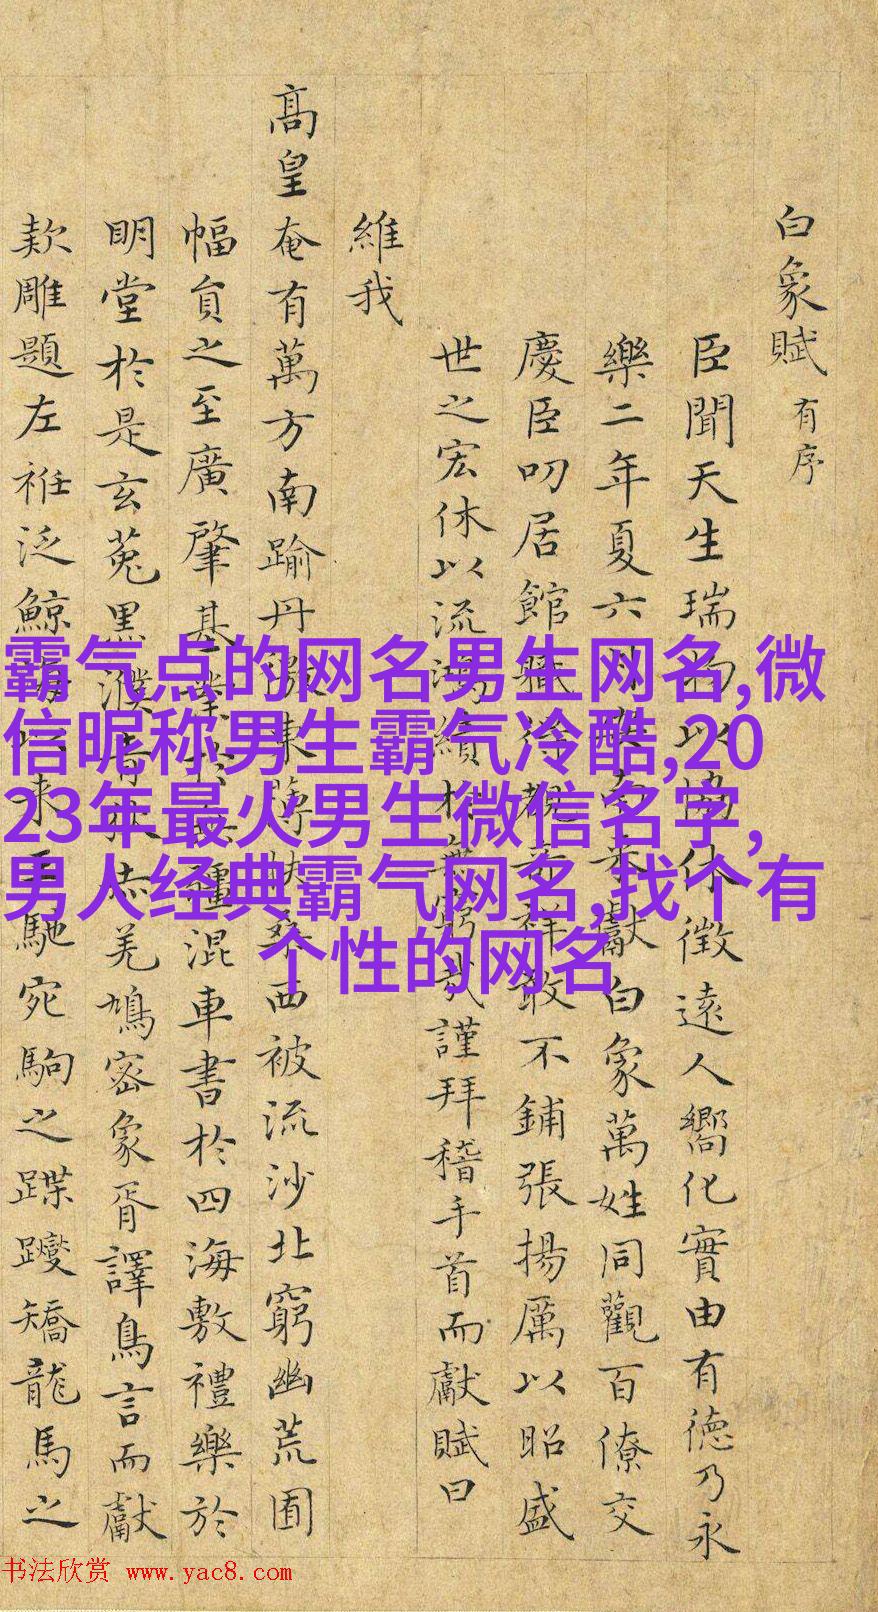 白象賦 有序
臣聞天生瑞物以協休徵遠人嚮化實由有德乃永
樂二年夏六南來獻白象萬姓同觀百僚交
慶臣叨居館職得觀禎祥敢不鋪張揚厲以昭盛
世之宏休以流鴻績於無窮哉謹拜稽手首而獻賦曰
維我
高皇奄有萬方南踰丹徼東薄扶桑西被流沙北窮幽荒圍
幅員之至廣肇基疆混車書於四海敷禮樂於
明堂於是玄菟黑濮青羌鳩密象胥譯鳥言而獻
欵雕題左袵泛鯨海以來王馳宛駒之蹀躞矯龍馬之
霸气点的网名男生网名,微
信昵称男生霸气冷酷,20
23年最火男生微信名字,
男人经典霸气网名,找个有
个性的网名
书法欣赏 www.yac8.com